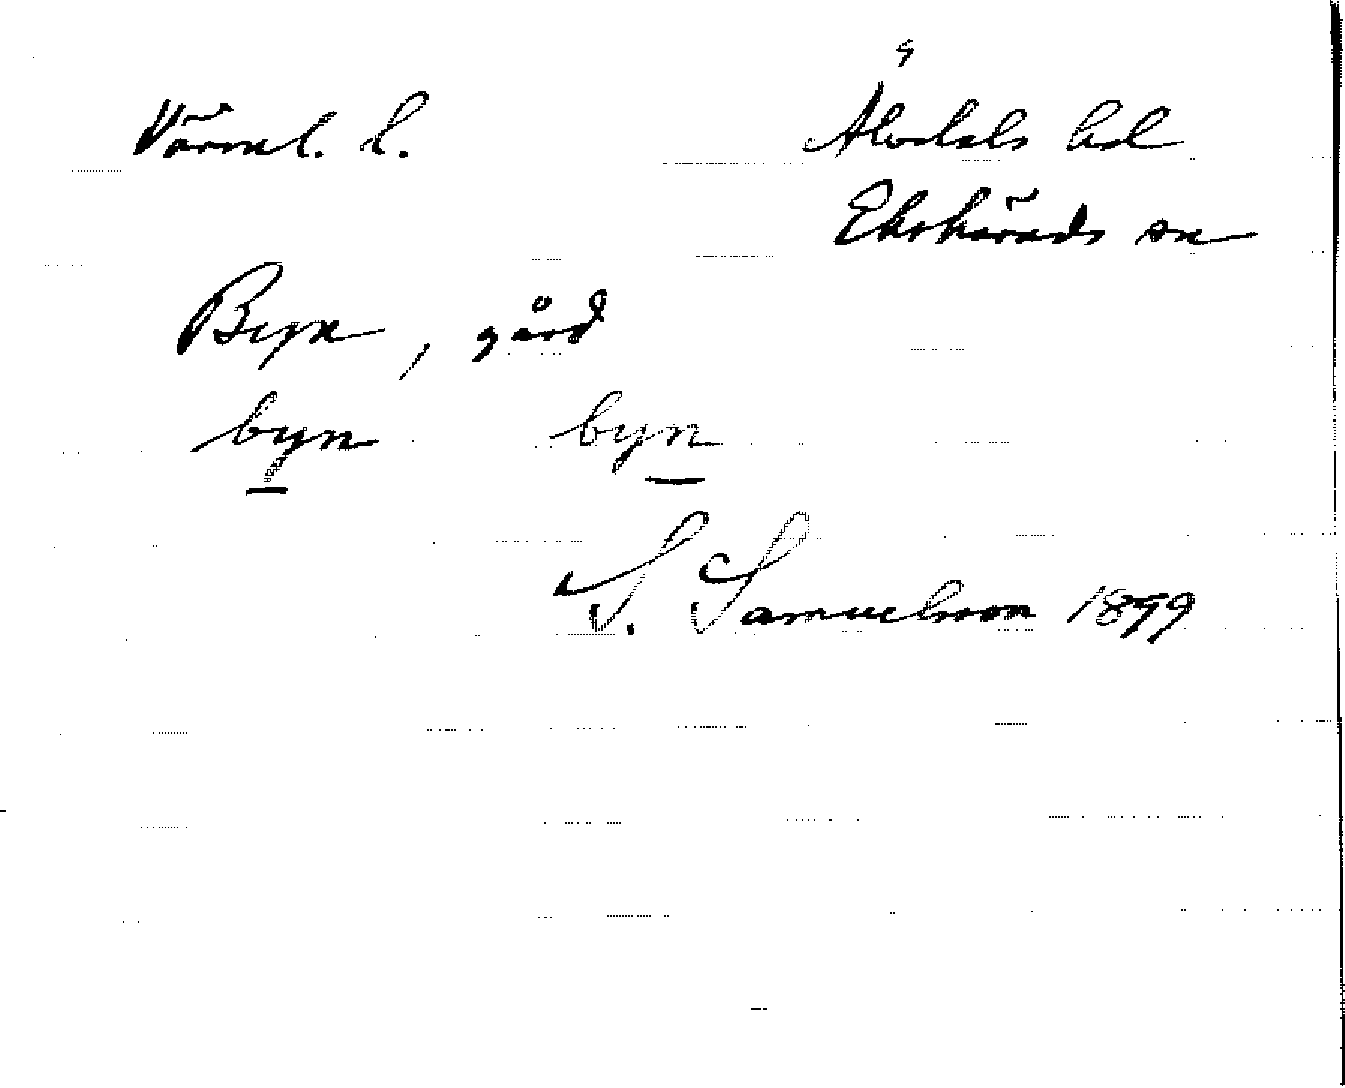 Värml. l.
Älvdals hd
Ekshärads sn
Byn, gård
byn byn
S. Samuelsson 1899